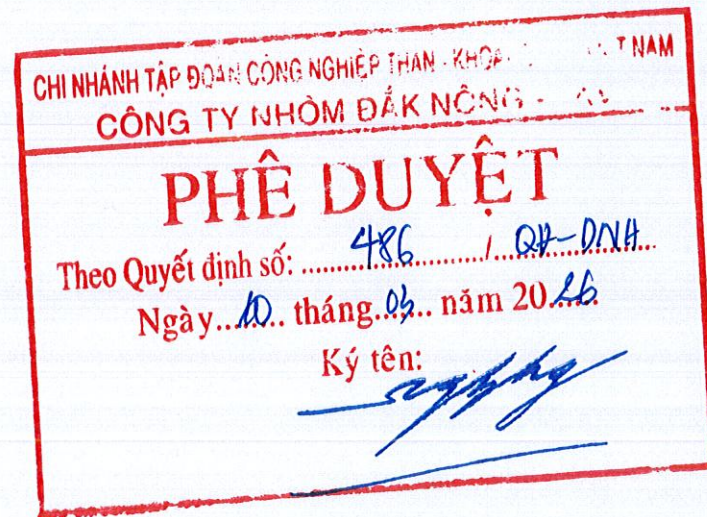 CHI NHÁNH TẬP ĐOÀN CÔNG NGHIỆP THAN - NAM
CÔNG TY NHÔM ĐẮK NÔNG -
PHÊ DUYỆT
Theo Quyết định số: 486 / QĐ-DNA
Ngày 10 tháng 03 năm 2026
Ký tên: